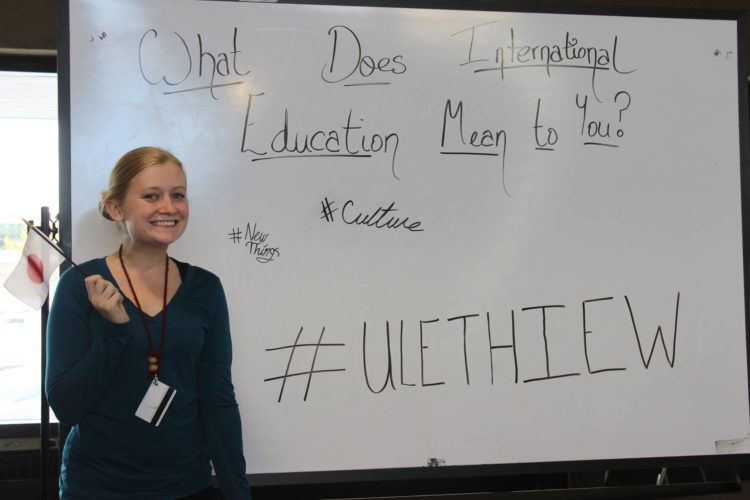 What Does International
Education Mean to You?
#Culture
#New
Things
#ULETHIEW